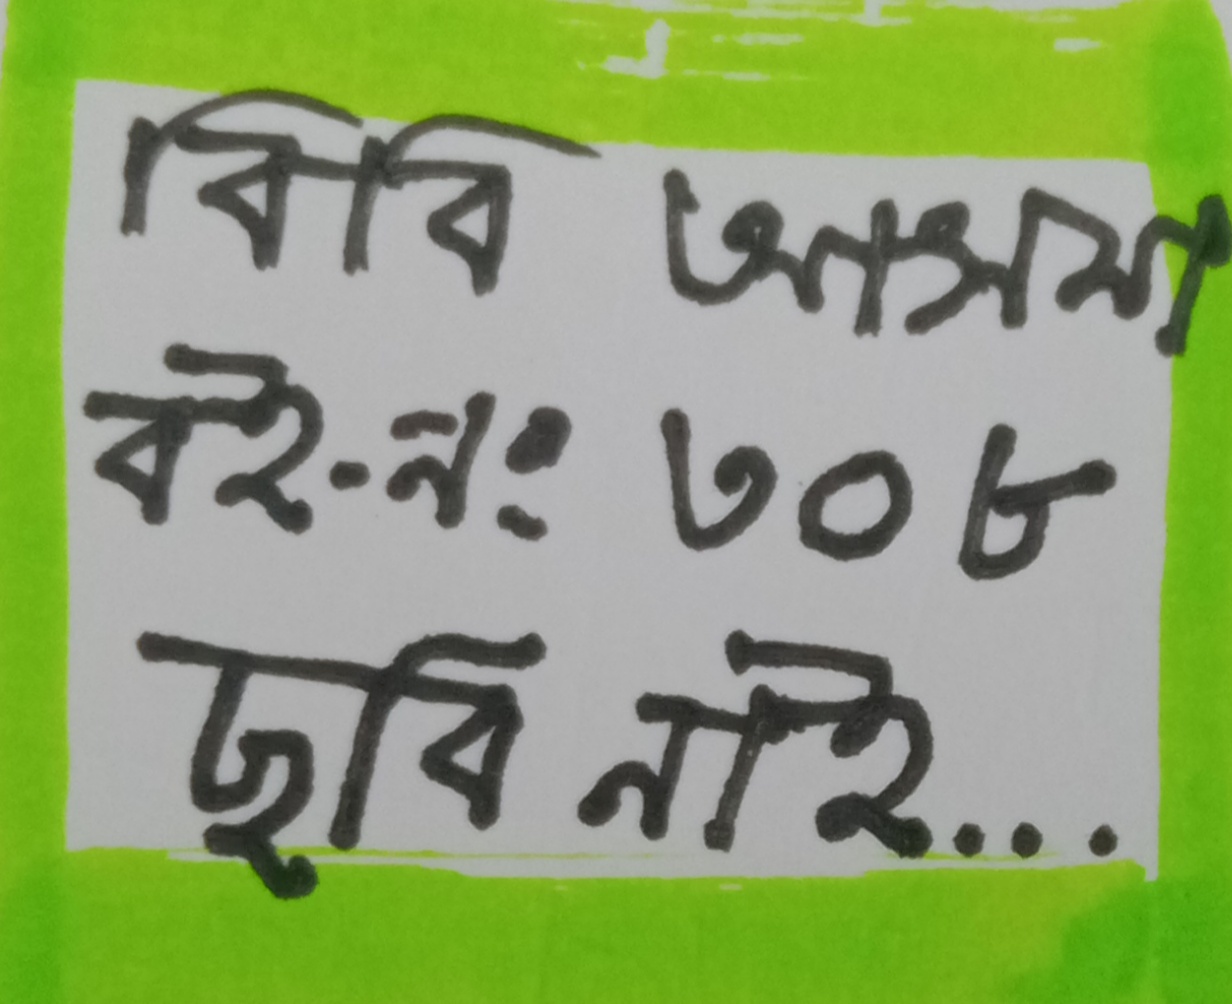 বিবি আসমা
বই-নং ৩০৮
ছবি নাই...